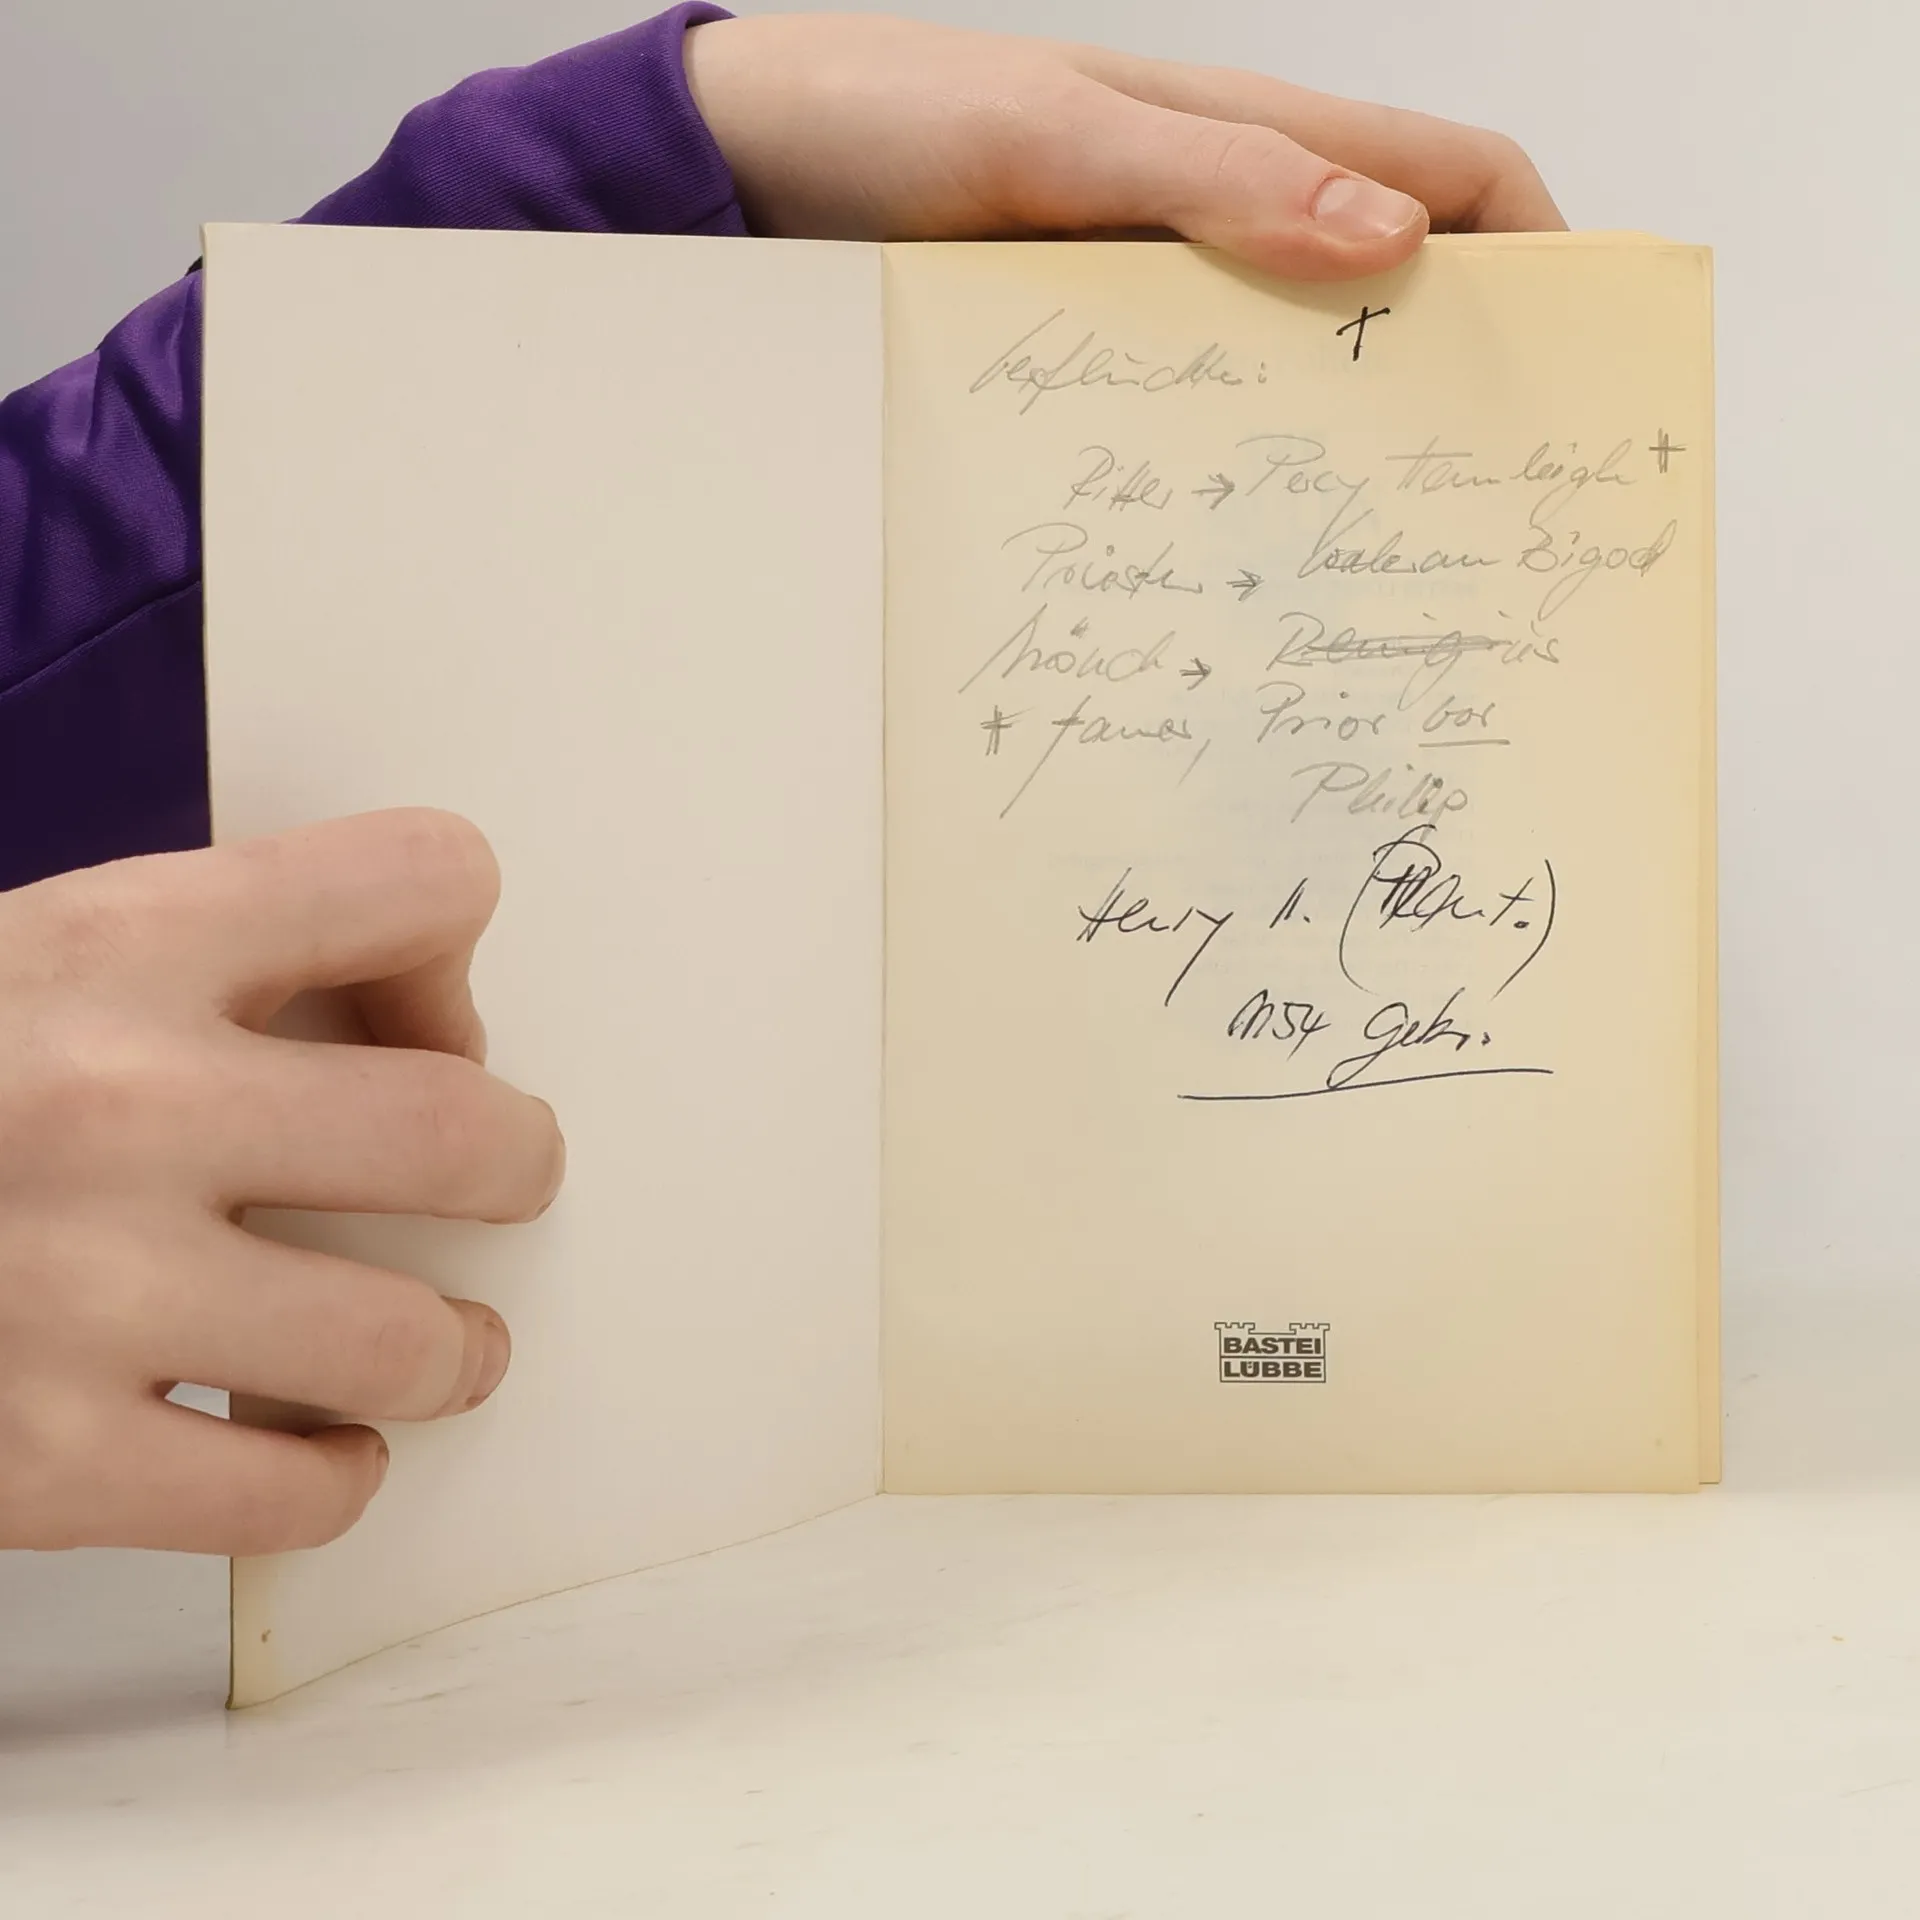 verfluchte:
Ritter → Percy Hamleigh ‡
Priester → Waleran Bigod
Mönch → Remigius
‡ James, Prior vor
Philip
Henry II.
1154 gekr.
BASTEI
LÜBBE